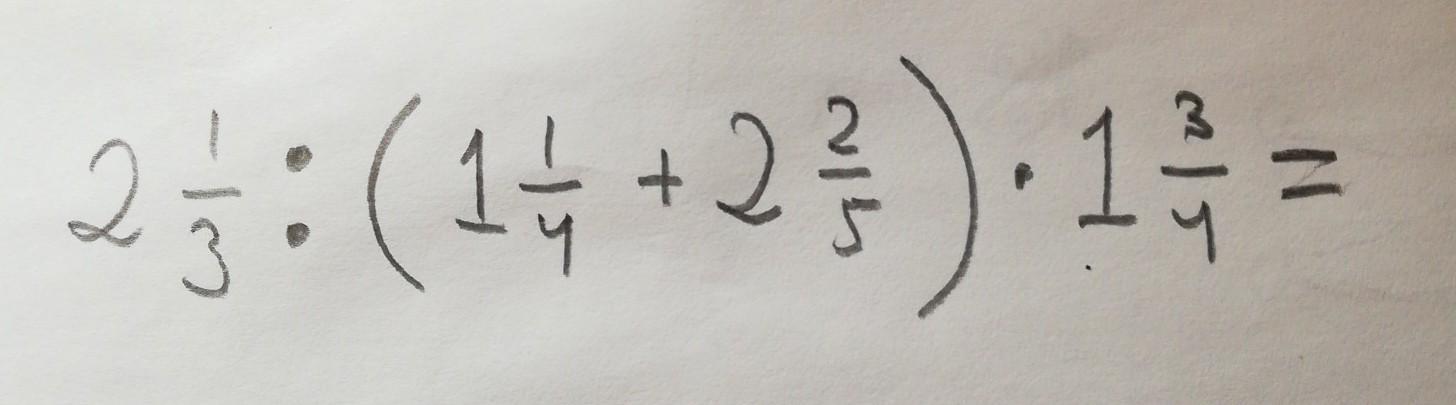 2 1/3 : (1 1/4 + 2 2/5) · 1 3/4 =